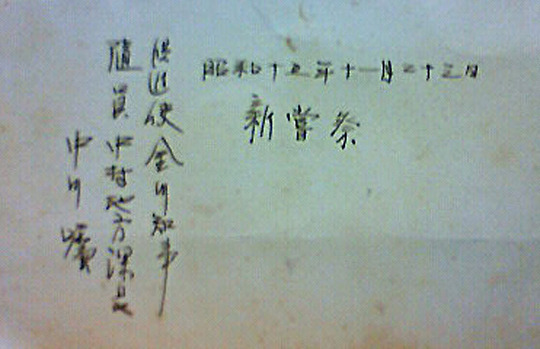 昭和十五年十一月二十三日
新嘗祭
供進使 金川知事
随員 中村地方課長
中川属